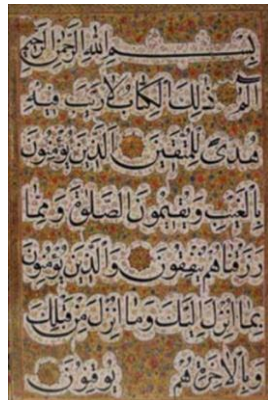 بسم الله الرحمن الرحيم
الم ذلك الكتاب لا ريب فيه
هدى للمتقين الذين يؤمنون
بالغيب ويقيمون الصلوة ومما
رزقناهم ينفقون والذين يؤمنون
بما انزل اليك وما انزل من قبلك
وبالآخرة هم يوقنون